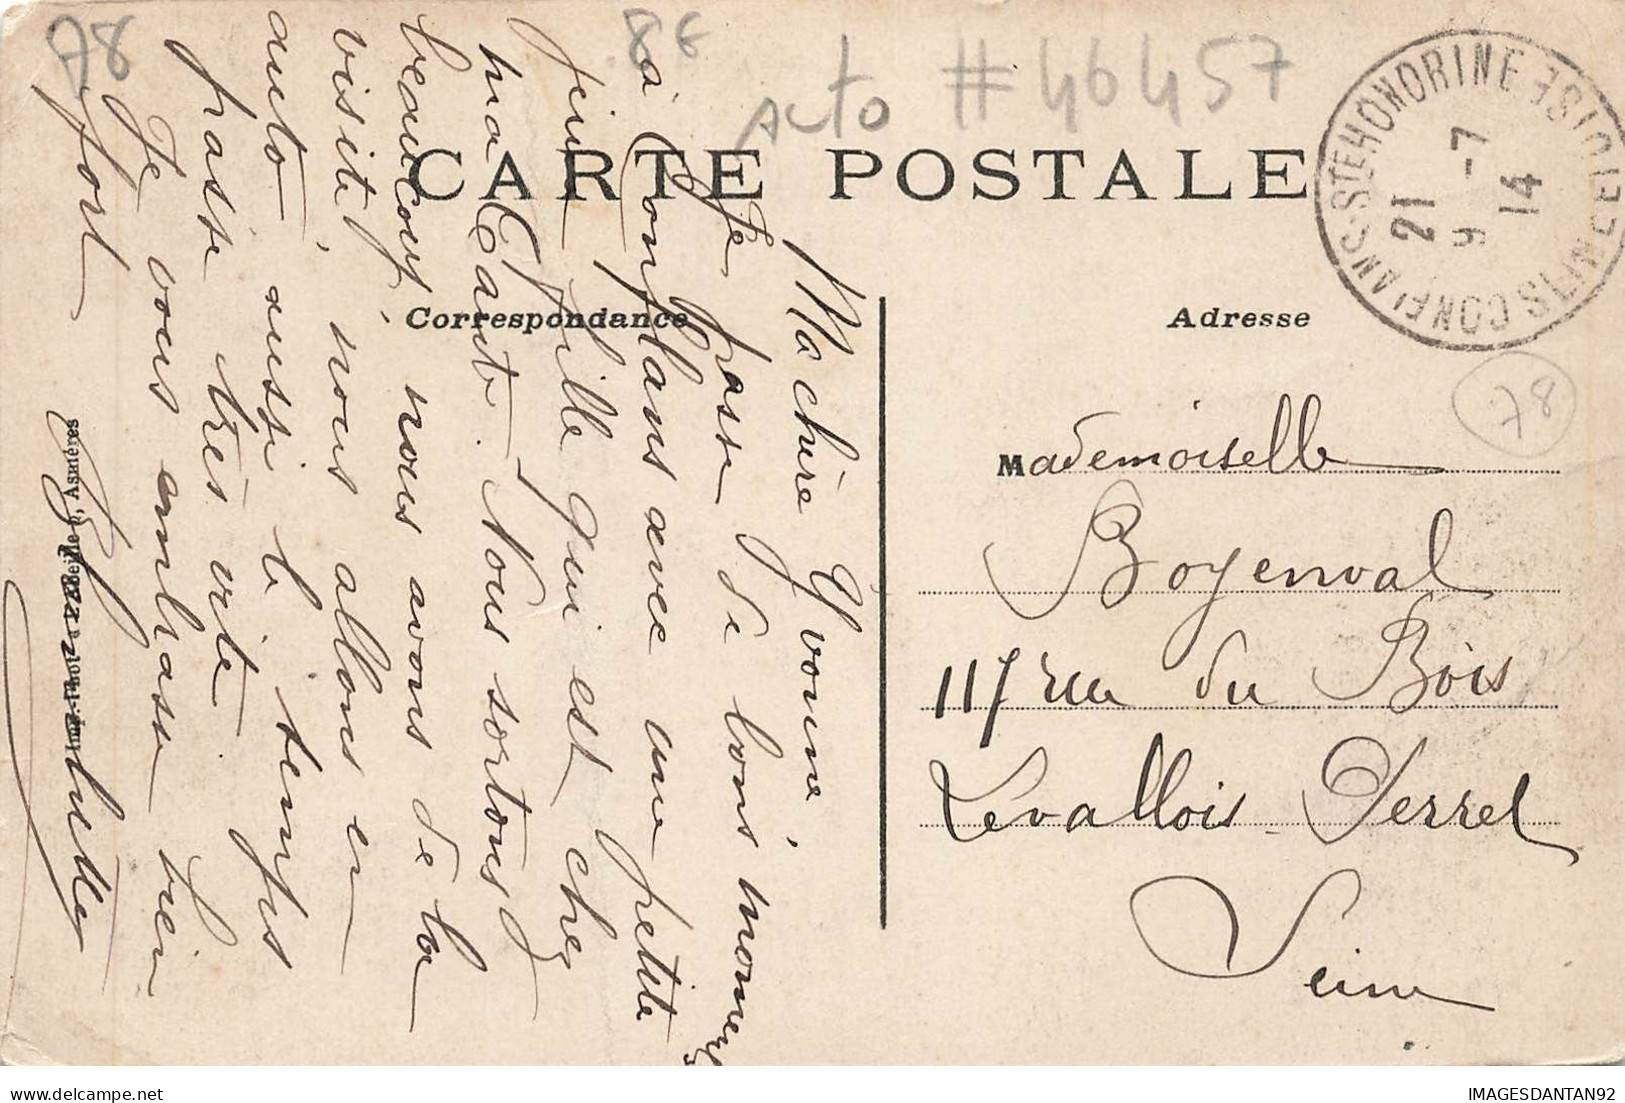 78
8€
auto #46457
CARTE POSTALE
CONFLANS-STE HONORINE
SEINE-ET-OISE
21
9-7
14
Correspondance
Adresse
78
Mademoiselle
Boyenval
117 rue du Bois
Levallois-Perret
Seine
Ma chère Yvonne,
Je passe de bons moments
à Conflans avec une petite
jeune fille qui est chez
ma Tante. Nous sortons
beaucoup, nous avons de la
visite, nous allons en
auto aussi le temps
passe très vite.
Je vous embrasse bien
fort
IMAGESDANTAN92